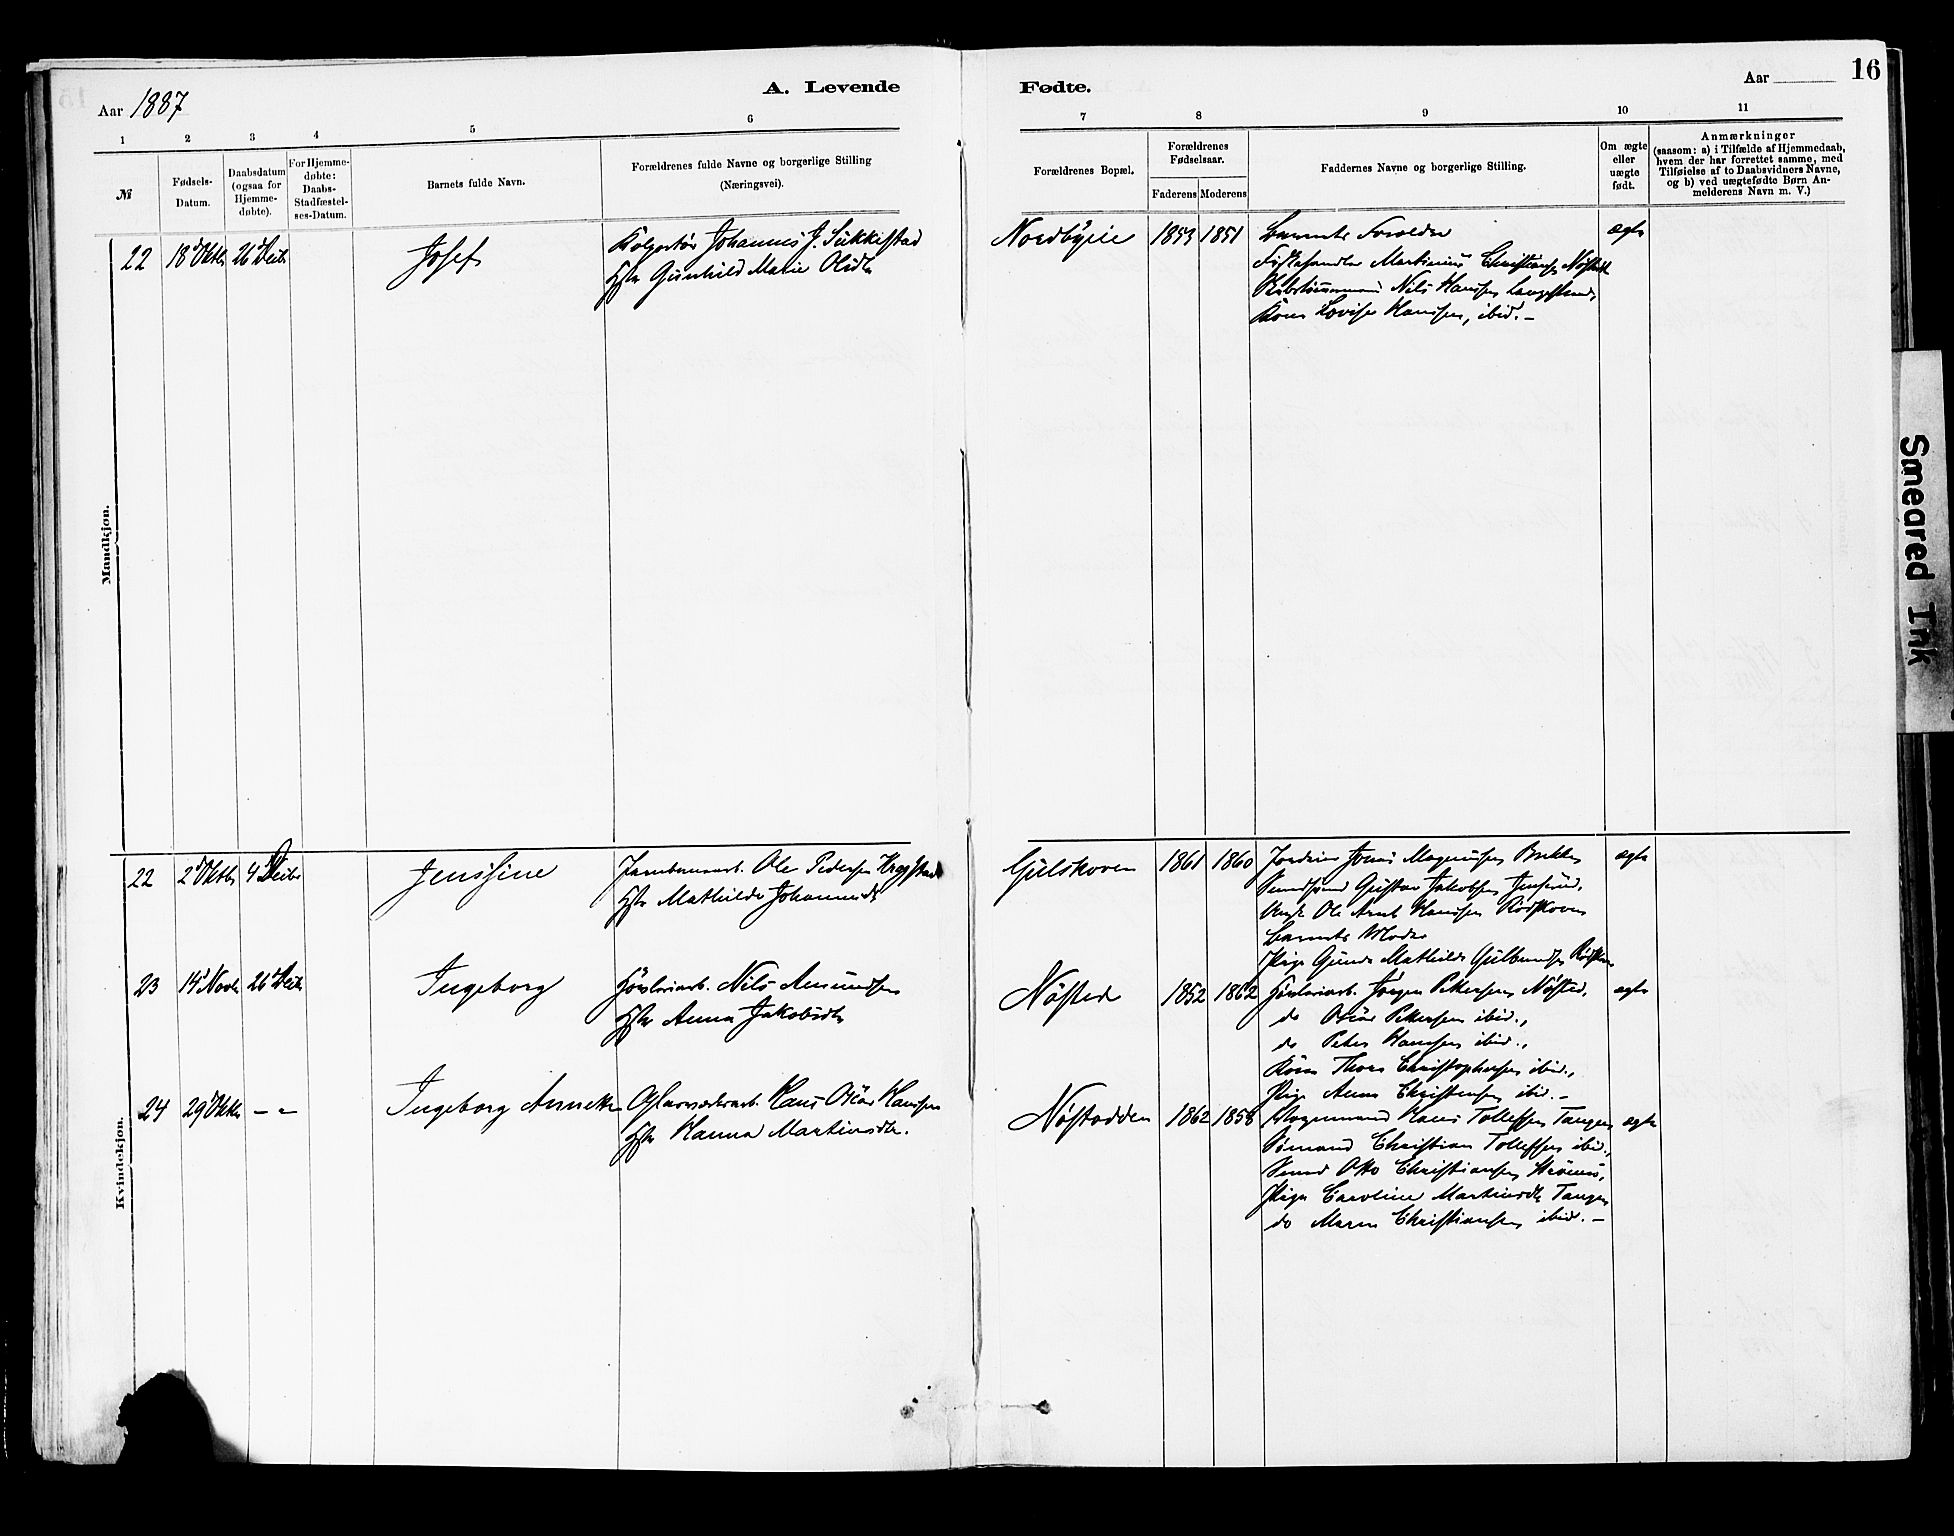 16
Aar 1887
A. Levende
Fødte.
Aar
1 2 3 4 5 6 7 8 9 10 11
№
Fødsels-
Datum.
Daabsdatum
(ogsaa for
Hjemme-
døbte).
For Hjemme-
døbte:
Daabs-
Stadfæstel-
ses-Datum.
Barnets fulde Navn.
Forældrenes fulde Navne og borgerlige Stilling
(Næringsvei).
Forældrenes Bopæl.
Forældrenes
Fødselsaar.
Faderens Moderens
Faddernes Navne og borgerlige Stilling.
Om ægte
eller
uægte
født.
Anmærkninger
(saasom: a) i Tilfælde af Hjemmedaab,
hvem der har forrettet samme, med
Tilføielse af to Daabsvidners Navne,
og b) ved uægtefødte Børn An-
melderens Navn m. V.)
Mandkjøn.
22 18 Oktbr 26 Decbr Josef
Kolportør Johannes J. Sukkestad
Hstr Gunhild Marie Olsdtr
Nordbyeie 1853 1851
Barnets Forældre
Martinius Christians
Nils Hansen
Kone Lovise Hansen, ibid. –
ægte
Kvindekjøn.
22 2 Oktbr 4 Decbr Jensine
Jernbanearb. Ole Pedersen
Hstr Mathilde Johannesdtr
Gulskoven 1861 1860
Jonas Magnussen
Gustav Jakobsen
Ole Hansen Rødskoven
Barnets Moder
Pige Gunda Mathilde Gulbrandsen
ægte
23 14 Novbr 26 Decbr Ingeborg
Høvleriarb. Nils Amundsen
Hstr Anna Jakobsdtr
Nøsted 1852 1862
Høvleriarb. Jørgen Pettersen Nøsted,
do Oscar Pettersen ibid.,
do Peter Hansen ibid.,
Kone Thora Christophersen ibid.,
Pige Anna Christensen ibid. –
ægte
24 29 Oktbr – " – Ingeborg Annette
Glasværksarb. Hans Oscar Hansen
Hstr Hanna Martinsdtr.
Nøstodden 1862 1858
Vognmand Hans Tollefsen Tangen
Sømand Christian Tollefsen ibid.,
Otto Christiansen Strømsø,
Pige Caroline Martinsdtr Tangen
do Maren Christiansen ibid. –
ægte
Smeared Ink